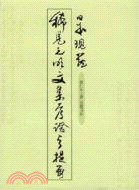 日本現藏
稀見元明文集考證与提要